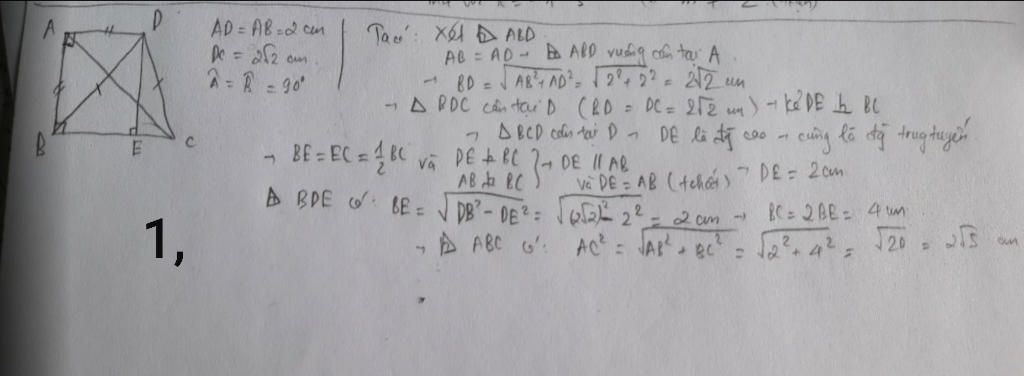 A D B E C
AD = AB = 2 cm
DC = 2√2 cm.
Â = B̂ = 90°
Ta có: Xét ⊿ ABD
AB = AD → ⊿ ABD vuông cân tại A
→ BD = √(AB² + AD²) = √(2² + 2²) = 2√2 cm
→ Δ BDC cân tại D (BD = DC = 2√2 cm) → kẻ DE ⊥ BC
→ Δ BCD cân tại D → DE là đg cao → cũng là đg trug tuyến.
→ BE = EC = 1/2 BC và DE ⊥ BC
AB ⊥ BC } → DE // AB
và DE = AB → DE = 2cm
⊿ BDE có: BE = √(DB² - DE²) = √((2√2)² - 2²) = 2 cm → BC = 2BE = 4 cm
→ ⊿ ABC có: AC² = √(AB² + BC²) = √(2² + 4²) = √20 = 2√5 cm
1,